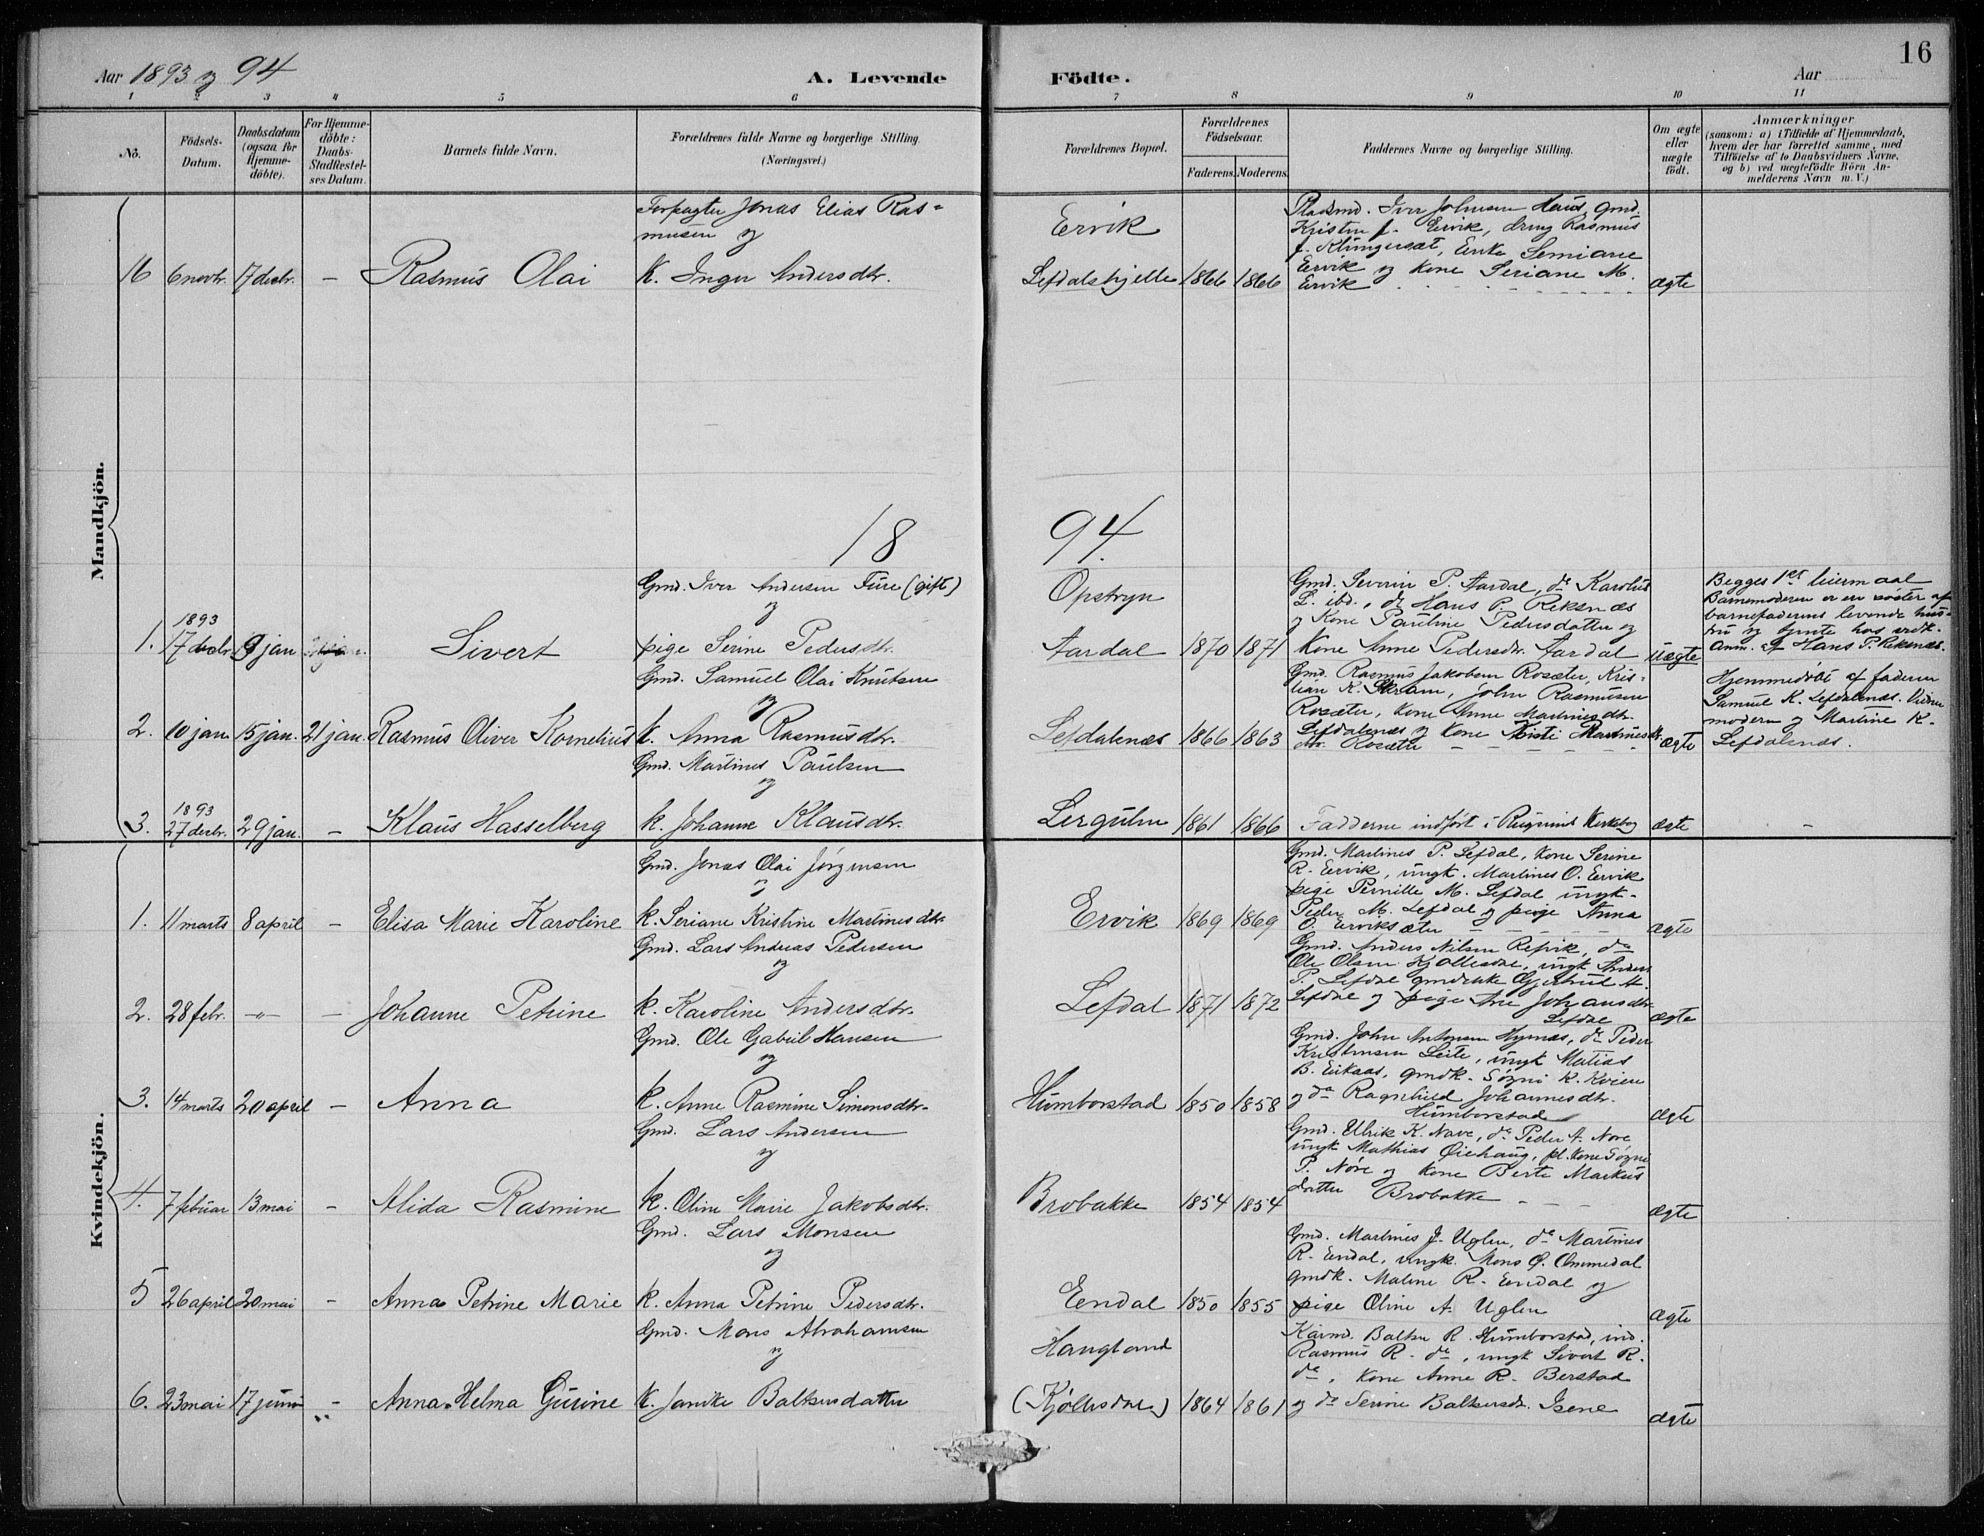 16
Aar 1893 og 94
A. Levende Födte.
Aar
1 2 3 4 5 6 7 8 9 10 11
No.
Födsels-Datum.
Daabsdatum (ogsaa for Hjemme-döbte).
For Hjemme-döbte: Daabs-Stadfæstel-ses Datum.
Barnets fulde Navn.
Forældrenes fulde Navne og borgerlige Stilling.
(Næringsvei.)
Forældrenes Bopæl.
Forældrenes Födselsaar.
Faderens. Moderens.
Faddernes Navne og borgerlige Stilling.
Om ægte eller uægte födt.
Anmærkninger
(saasom: a) i Tilfælde af Hjemmedaab, hvem der har forrettet samme, med Tilföielse af to Daabsvidners Navne, og b) ved uægtefödte Börn An-melderens Navn m. V.)
Mandkjön.
Forpagter Jonas Elias Ras-
musen og
16 6 novbr. 17 decbr. - Rasmus Olai K. Inger Andersdtr.
Ervik
Lefdalshjelle 1866 1866
Pladsmd. Iver Johnsen Haus, Gmd.
Kristen J. Ervik, dreng Rasmus
J. Klungresæt, Enke Semiane
Ervik og Kone Seriane M.
Ervik
ægte
18 94.
Gmd. Iver Andersen Fure (gift)
og
1893
1. 17 decbr 9 jan Sivert pige Serine Pedersdtr.
Opstryn
Aardal 1870 1871
Gmd. Severin P. Aardal, do Karolus
L. ibd., do Hans P. Reksnæs
og Kone Pauline Pedersdatter og
Kone Anne Pedersdtr. Aardal
uægte
Begges 1ste leiermaal
Barnemoderen er en søster af
barnefaderens levende hus-
tru og tjente hos
Anm. af Hans P. Reksnæs.
Gmd. Samuel Olai Knutsen
og
2. 10 jan 15 jan. 21 jan. Rasmus Oliver Kornelius k. Anna Rasmusdtr.
Lefdalenæs 1866 1863
Gmd. Rasmus Jakobsen Rosæter, Kris-
tian K. Skram, John Rasmusen
Rosæter, Kone Anne Martinesdtr.
Lefdalenæs og Kone Kristi Martines
dtr. Rosæter
ægte
Hjemmedøbt af faderen
Samuel K. Lefdalenæs. Vidner
moderen og Martine K.
Lefdalenæs.
Gmd. Martines Paulsen
og
1893
3. 27 decbr. 29 jan. - Klaus Hasselberg k. Johanne Klausdtr.
Lergulen 1861 1866 Fadderne indført i Rugsunds Kirkebog ægte -
Kvindekjön.
Gmd. Jonas Olai Jørgensen
og
1. 11 marts 8 april - Elisa Marie Karoline k. Seriane Kristine Martinesdtr.
Ervik 1869 1869
Gmd. Martines P. Lefdal, Kone Serine
R. Ervik, ungk. Martines O. Ervik
pige Pernille M. Lefdal ungk.
Peder M. Lefdal og pige Anna
O. Erviksæter
ægte
Gmd. Lars Andreas Pedersen
og
2. 28 febr. -"- - Johanne Petrine k. Karoline Andersdtr.
Lefdal 1871 1872
Gmd. Anders Nilsen Refvik, do
Ole Olsen Kjøllesdal, ungk Anders
P. Lefdal gmdenke Gjertrud A.
Lefdal og pige Ane Johansdtr.
Lefdal
ægte
Gmd. Ole Gabriel Hansen
og
3. 14 marts 20 april - Anna k. Anne Rasmine Simonsdtr.
Humborstad 1850 1858
Gmd. John Antonsen Hynæs, do Peder
Kristensen Leite, ungk Matias
B. Eikaas, gmdk. Søgni K. Kvien
og do Ragnhild Johannesdtr.
Humborstad
ægte
Gmd. Lars Andersen
og
4. 7 februar 13 mai - Alida Rasmine k. Oline Marie Jakobsdtr.
Brobakke 1854 1854
Gmd. Ulrik K. Nave, do Peder A. Nore,
ungk Mathias Øiehaug, pl. Kone Søgni
P. Nøre og Kone Berte Markus
datter Brobakke
ægte
Gmd. Lars Monsen
og
5 26 april 20 mai - Anna Petrine Marie k. Anna Petrine Pedersdtr.
Endal 1850 1855
Gmd. Martines J. Uglen, do Martines
R. Endal, ungk. Mons O. Ommedal
gmdk. Maline R. Endal og
pige Oline A. Uglen
ægte
Gmd. Mons Abrahamsen
og
6. 23 mai 17 juni - Anna Helma Gurine k. Janike Baltsersdatter
Haugland
(Kjøllesdal) 1864 1861
Kaarmd. Baltser R. Humborstad, ind.
Rasmus R. do, ungk Sivert R.
do, Kone Anne R. Berstad
og do Serine Baltsersdtr. Isene
ægte